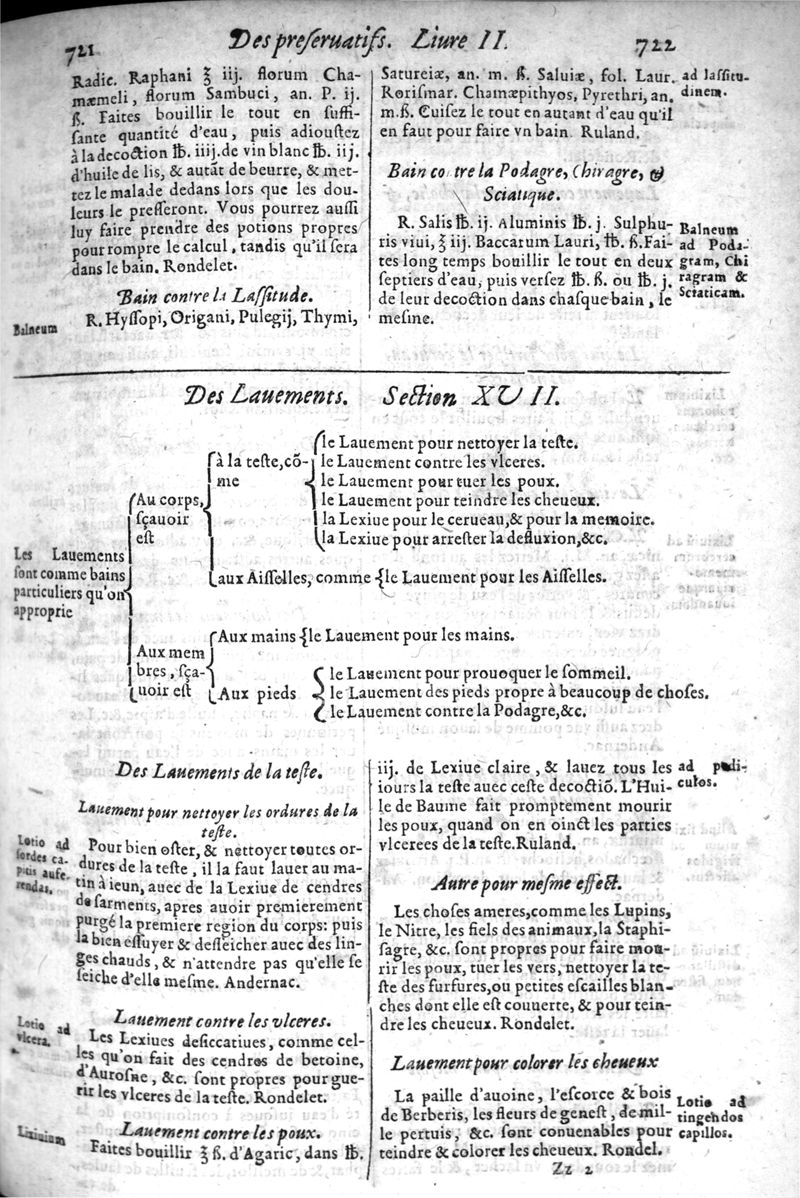 721
Des preseruatifs. Liure II.
722
Radic. Raphani ℥ iij. florum Cha-
mæmeli, florum Sambuci, an. P. ij.
ß. Faites bouillir le tout en suffi-
sante quantité d'eau, puis adioustez
à la decoction ℔. iiij. de vin blanc ℔. iij.
d'huile de lis, & autāt de beurre, & met-
tez le malade dedans lors que les dou-
leurs le presseront. Vous pourrez aussi
luy faire prendre des potions propres
pour rompre le calcul, tandis qu'il sera
dans le bain. Rondelet.
Bain contre la Lassitude.
Balneum
R. Hyssopi, Origani, Pulegij, Thymi,
Satureiæ, an. m. ß. Saluiæ, fol. Laur.
Rorismar. Chamæpithyos, Pyrethri, an.
m. ß. Cuisez le tout en autant d'eau qu'il
en faut pour faire vn bain. Ruland.
ad lassitu-
dinem.
Bain contre la Podagre, Chiragre, &
Sciatique.
R. Salis ℔. ij. Aluminis ℔. j. Sulphu-
ris viui, ℥ iij. Baccarum Lauri, ℔. ß. Fai-
tes long temps bouillir le tout en deux
septiers d'eau, puis versez ℔. ß. ou ℔. j.
de leur decoction dans chasque bain, le
mesme.
Balneum
ad Poda-
gram, Chi
ragram &
Sciaticam.
Des Lauements. Section XVII.
Les Lauements
sont comme bains
particuliers qu'on
approprie
Au corps,
sçauoir
est
à la teste, cō-
me
le Lauement pour nettoyer la teste.
le Lauement contre les vlceres.
le Lauement pour tuer les poux.
le Lauement pour teindre les cheueux.
la Lexiue pour le cerueau, & pour la memoire.
la Lexiue pour arrester la defluxion, &c.
aux Aisselles, comme {le Lauement pour les Aisselles.
Aux mem
bres, sça-
uoir est
Aux mains {le Lauement pour les mains.
Aux pieds
le Lauement pour prouoquer le sommeil.
le Lauement des pieds propre à beaucoup de choses.
le Lauement contre la Podagre, &c.
Des Lauements de la teste.
Lauement pour nettoyer les ordures de la
teste.
Lotio ad
sordes ca-
pitis aufe-
rendas.
Pour bien oster, & nettoyer toutes or-
dures de la teste, il la faut lauer au ma-
tin à ieun, auec de la Lexiue de cendres
de sarments, apres auoir premierement
purgé la premiere region du corps: puis
la bien essuyer & desseicher auec des lin-
ges chauds, & n'attendre pas qu'elle se
seiche d'elle mesme. Andernac.
Lauement contre les vlceres.
Lotio ad
vlcera.
Les Lexiues desiccatiues, comme cel-
les qu'on fait des cendres de betoine,
d'Aurosne, &c. sont propres pour gue-
rir les vlceres de la teste. Rondelet.
Lauement contre les poux.
Lixiuium
Faites bouillir ℥ ß. d'Agaric, dans ℔.
iij. de Lexiue claire, & lauez tous les
iours la teste auec ceste decoctiō. L'Hui-
le de Baume fait promptement mourir
les poux, quand on en oinct les parties
vlcerees de la teste. Ruland.
ad pedi-
culos.
Autre pour mesme effect.
Les choses ameres, comme les Lupins,
le Nitre, les fiels des animaux, la Staphi-
sagre, &c. sont propres pour faire mou-
rir les poux, tuer les vers, nettoyer la te-
ste des furfures, ou petites escailles blan-
ches dont elle est couuerte, & pour tein-
dre les cheueux. Rondelet.
Lauement pour colorer les cheueux
La paille d'auoine, l'escorce & bois
de Berberis, les fleurs de genest, de mil-
le pertuis, &c. sont conuenables pour
teindre & colorer les cheueux. Rondel.
Lotio ad
tingendos
capillos.
Zz 2